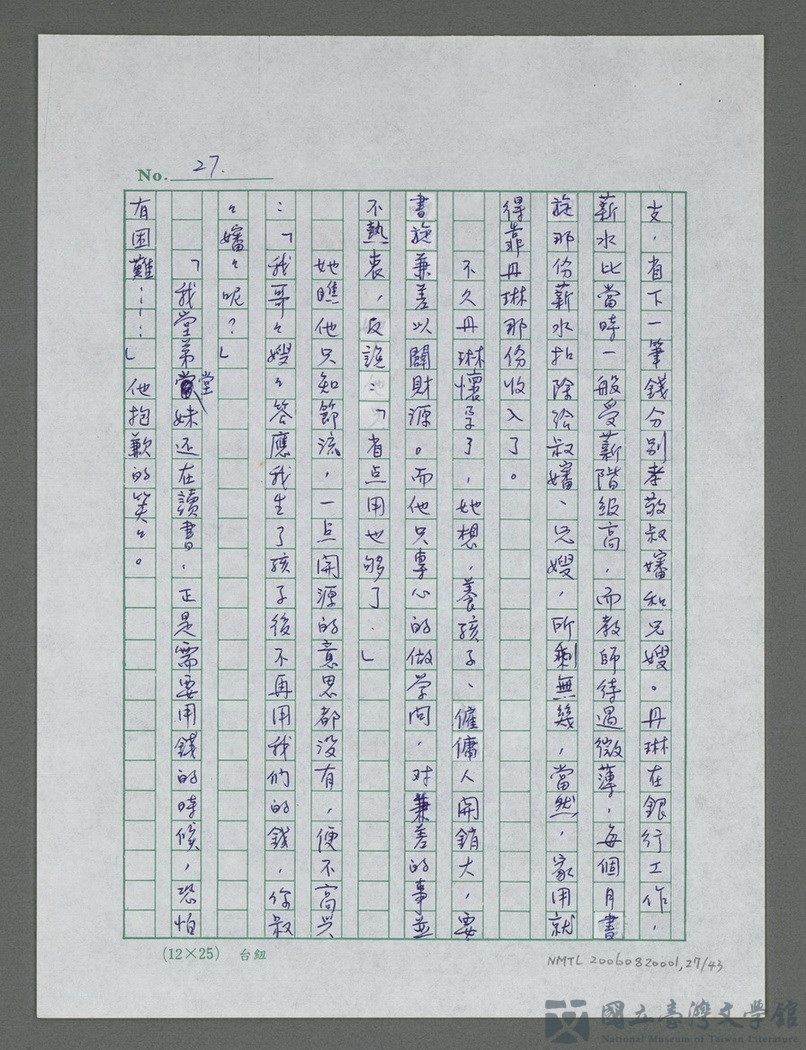 No. 27.
支，省下一筆錢分別孝敬叔嬸和兄嫂。丹琳在銀行工作，
薪水比當時一般受薪階級高，而教師待遇微薄，每個月書
旋那份薪水扣除給叔嬸、兄嫂，所剩無幾，當然，家用就
得靠丹琳那份收入了。
不久丹琳懷孕了，她想，養孩子、僱傭人開銷大，要
書旋兼差以闢財源。而他只專心的做学问，对兼差的事並
不熱衷，反說：「省点用也够了.」
她瞧他只知節流，一点開源的意思都没有，便不高兴
：「我哥々嫂々答應我生了孩子後不再用我们的錢，你叔
々嬸々呢？」
「我堂弟堂妹还在讀書，正是需要用錢的時候，恐怕
有困難……」他抱歉的笑々。
(12×25) 台紐
NMTL 20060820001, 27/43
國立臺灣文學館
National Museum of Taiwan Literature